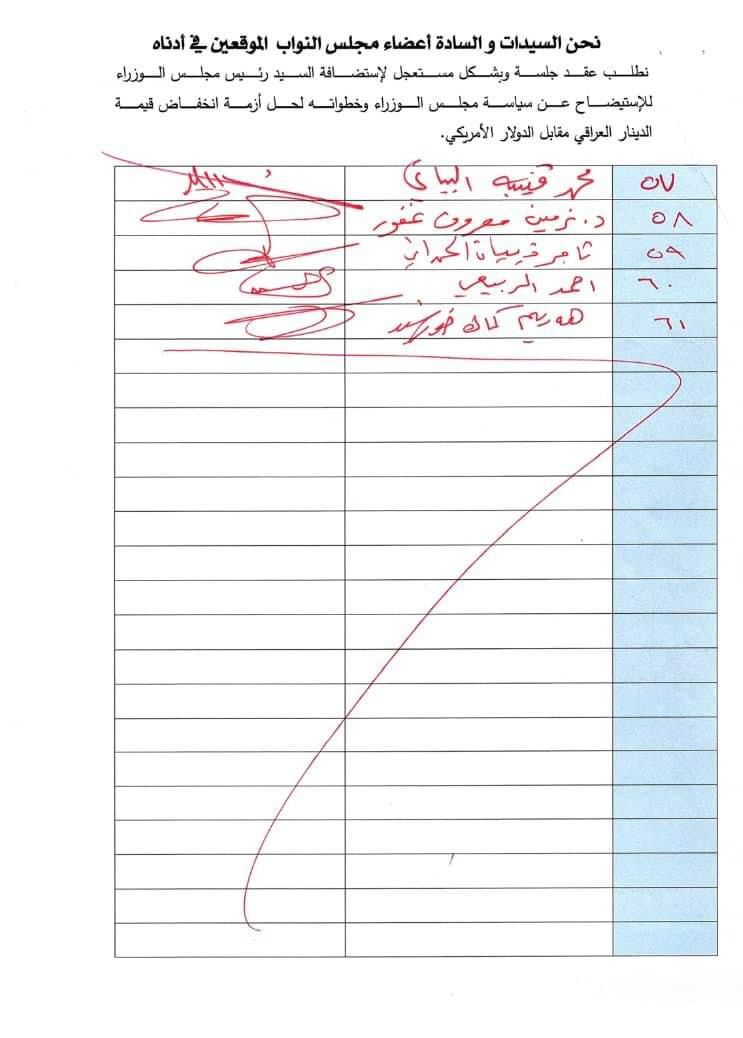 نحن السيدات و السادة أعضاء مجلس النواب الموقعين في أدناه
نطلب عقد جلسة وبشكل مستعجل لإستضافة السيد رئيس مجلس الوزراء
للإستيضاح عن سياسة مجلس الوزراء وخطواته لحل أزمة انخفاض قيمة
الدينار العراقي مقابل الدولار الأمريكي.
٥٧ محمد قتيبه البياتي
٥٨ د. نرمين معروف غفور
٥٩
٦٠ احمد الربيعي
٦١ هه ريم كمال خورشيد